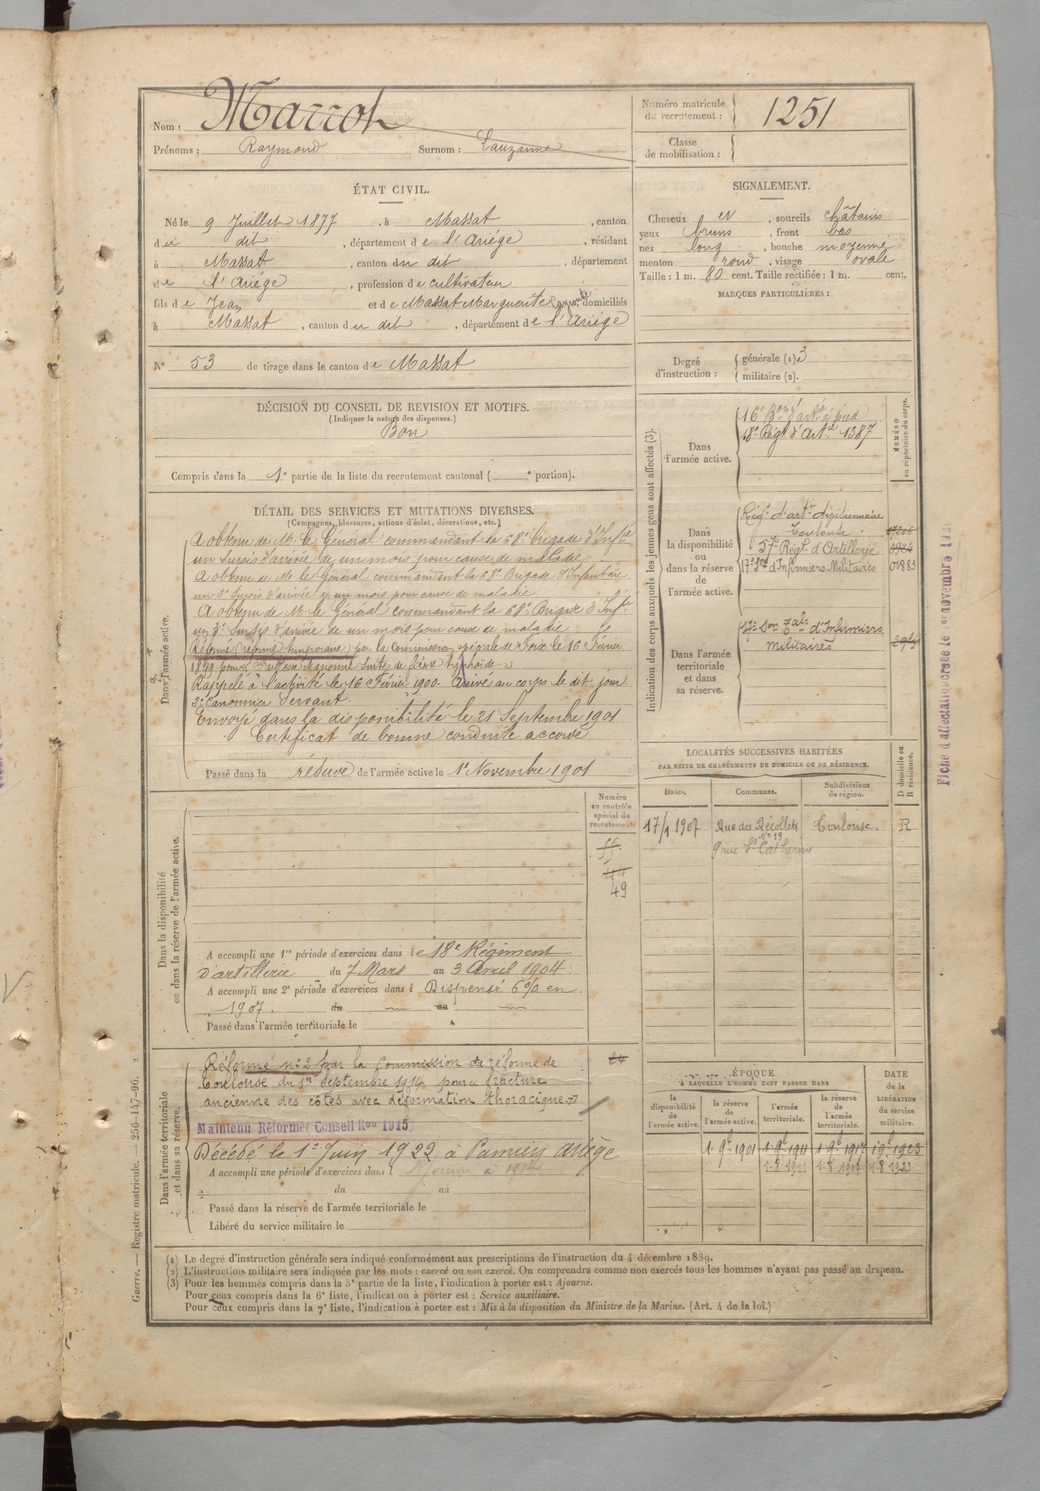 Nom : Marrot
Prénoms : Raymond Surnom : Lauzanne
Numéro matricule du recrutement : 1251
Classe de mobilisation :
ÉTAT CIVIL.
Né le 9 Juillet 1877, à Massat, canton
du dit, département de l'Ariége, résidant
à Massat, canton du dit, département
de l'Ariége, profession de cultivateur
fils de Jean et de Massat Marguerite domiciliés
à Massat, canton du dit, département de l'Ariége
N° 53 de tirage dans le canton de Massat
SIGNALEMENT.
Cheveux et, sourcils châtains
yeux bruns, front bas
nez long, bouche moyenne
menton rond, visage ovale
Taille : 1 m. 80 cent. Taille rectifiée : 1 m. cent.
MARQUES PARTICULIÈRES :
Degré d'instruction : générale (1) 3
militaire (2).
DÉCISION DU CONSEIL DE REVISION ET MOTIFS.
(Indiquer la nature des dispenses.)
Bon
Compris dans la 1e partie de la liste du recrutement cantonal ( e portion).
DÉTAIL DES SERVICES ET MUTATIONS DIVERSES.
(Campagnes, blessures, actions d'éclat, décorations, etc.)
Dans l'armée active.
A obtenu de M. le Général commandant la 68e brigade d'Infie
un sursis d'arrivée de un mois pour cause de maladie
A obtenu de M. le Général commandant la 68e Brigade d'Infanterie
un 2e sursis d'arrivée d'un mois pour cause de maladie
A obtenu de M. le Général commandant la 68e Brigade d'Infie
un 3e sursis d'arrivée de un mois pour cause de maladie
Réformé (réforme temporaire) par la Commission spéciale de Foix le 10 Février
1899 pour suite de fièvre typhoïde
Rappelé à l'activité le 16 Février 1900. Arrivé au corps le dit jour
2e Canonnier Servant.
Envoyé dans la disponibilité le 21 Septembre 1901
Certificat de bonne conduite accordé
Passé dans la réserve de l'armée active le 1er Novembre 1901
Indication des corps auxquels les jeunes gens sont affectés (3).
NUMÉRO au répertoire du corps.
Dans l'armée active.
16e Bon d'artie à pied
18e Régt d'Artie 1387
Dans la disponibilité ou dans la réserve de l'armée active.
Régt d'artie divisionnaire
Toulouse
57e Régt d'Artillerie
17e Son d'Infirmiers Militaires 01883
Dans l'armée territoriale et dans sa réserve.
17e Son Tale d'Infirmiers
Militaires
LOCALITÉS SUCCESSIVES HABITÉES
PAR SUITE DE CHANGEMENTS DE DOMICILE OU DE RÉSIDENCE.
Dates. Communes. Subdivisions de région. D domicile ou R résidence.
17/1 1907 Rue des Récollets N° 19 Toulouse. R
9 rue Ste Catherine
Dans la disponibilité ou dans la réserve de l'armée active.
Numéro au contrôle spécial du recrutement
49
A accompli une 1re période d'exercices dans le 18e Régiment
d'artillerie du 7 Mars au 3 Avril 1904.
A accompli une 2e période d'exercices dans l Dispensé 6% en
1907. du au
Passé dans l'armée territoriale le
Dans l'armée territoriale et dans sa réserve.
Réformé n° 2 par la Commission de réforme de
Toulouse du 1er Septembre 1914 pour fracture
ancienne des côtes avec déformation thoracique
Maintenu Réformé Conseil Ron 1915
Décédé le 1er Juin 1922 à Pamiers Ariège
A accompli une période d'exercices dans
du au
Passé dans la réserve de l'armée territoriale le
Libéré du service militaire le
ÉPOQUE
A LAQUELLE L'HOMME DOIT PASSER DANS
la disponibilité de l'armée active. la réserve de l'armée active. l'armée territoriale. la réserve de l'armée territoriale.
DATE de la LIBÉRATION du service militaire.
1 9bre 1901 1 9bre 1911 1 9bre 1917
Fiche d'affectation créée le 1er novembre
Guerre. — Registre matricule. — 256-147-96.
(1) Le degré d'instruction générale sera indiqué conformément aux prescriptions de l'instruction du 4 décembre 1889.
(2) L'instruction militaire sera indiquée par les mots : exercé ou non exercé. On comprendra comme non exercés tous les hommes n'ayant pas passé au drapeau.
(3) Pour les hommes compris dans la 5e partie de la liste, l'indication à porter est : Ajourné.
Pour ceux compris dans la 6e liste, l'indication à porter est : Service auxiliaire.
Pour ceux compris dans la 7e liste, l'indication à porter est : Mis à la disposition du Ministre de la Marine. (Art. 4 de la loi.)